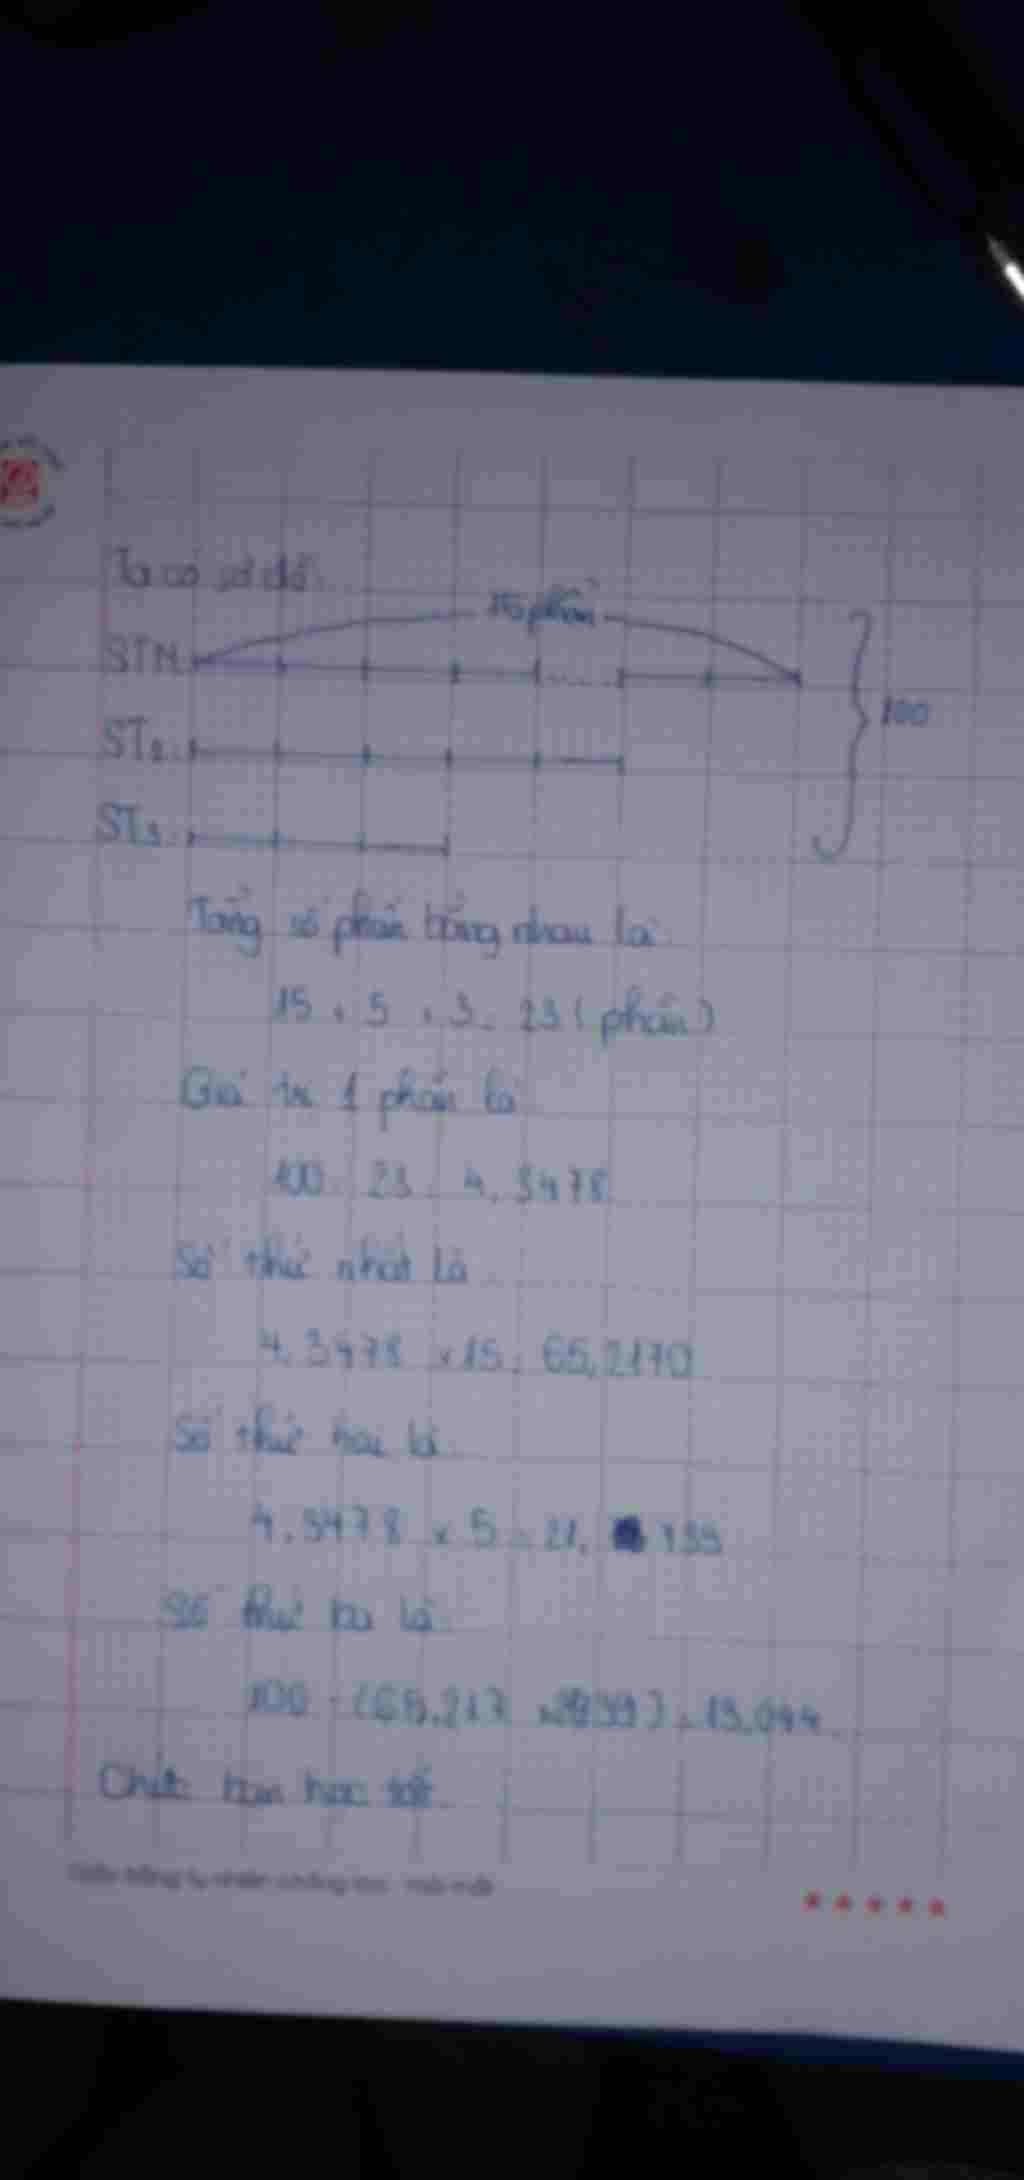 Ta có sơ đồ:
15 phần
STN:
100
ST2:
ST3:
Tổng số phần bằng nhau là:
15 + 5 + 3 = 23 (phần)
Giá trị 1 phần là:
100 : 23 = 4,3478
Số thứ nhất là:
4,3478 x 15 = 65,2170
Số thứ hai là:
4,3478 x 5 = 21, 739
Số thứ ba là:
100 - (65,217 + 739) = 13,044
Chúc bạn học tốt